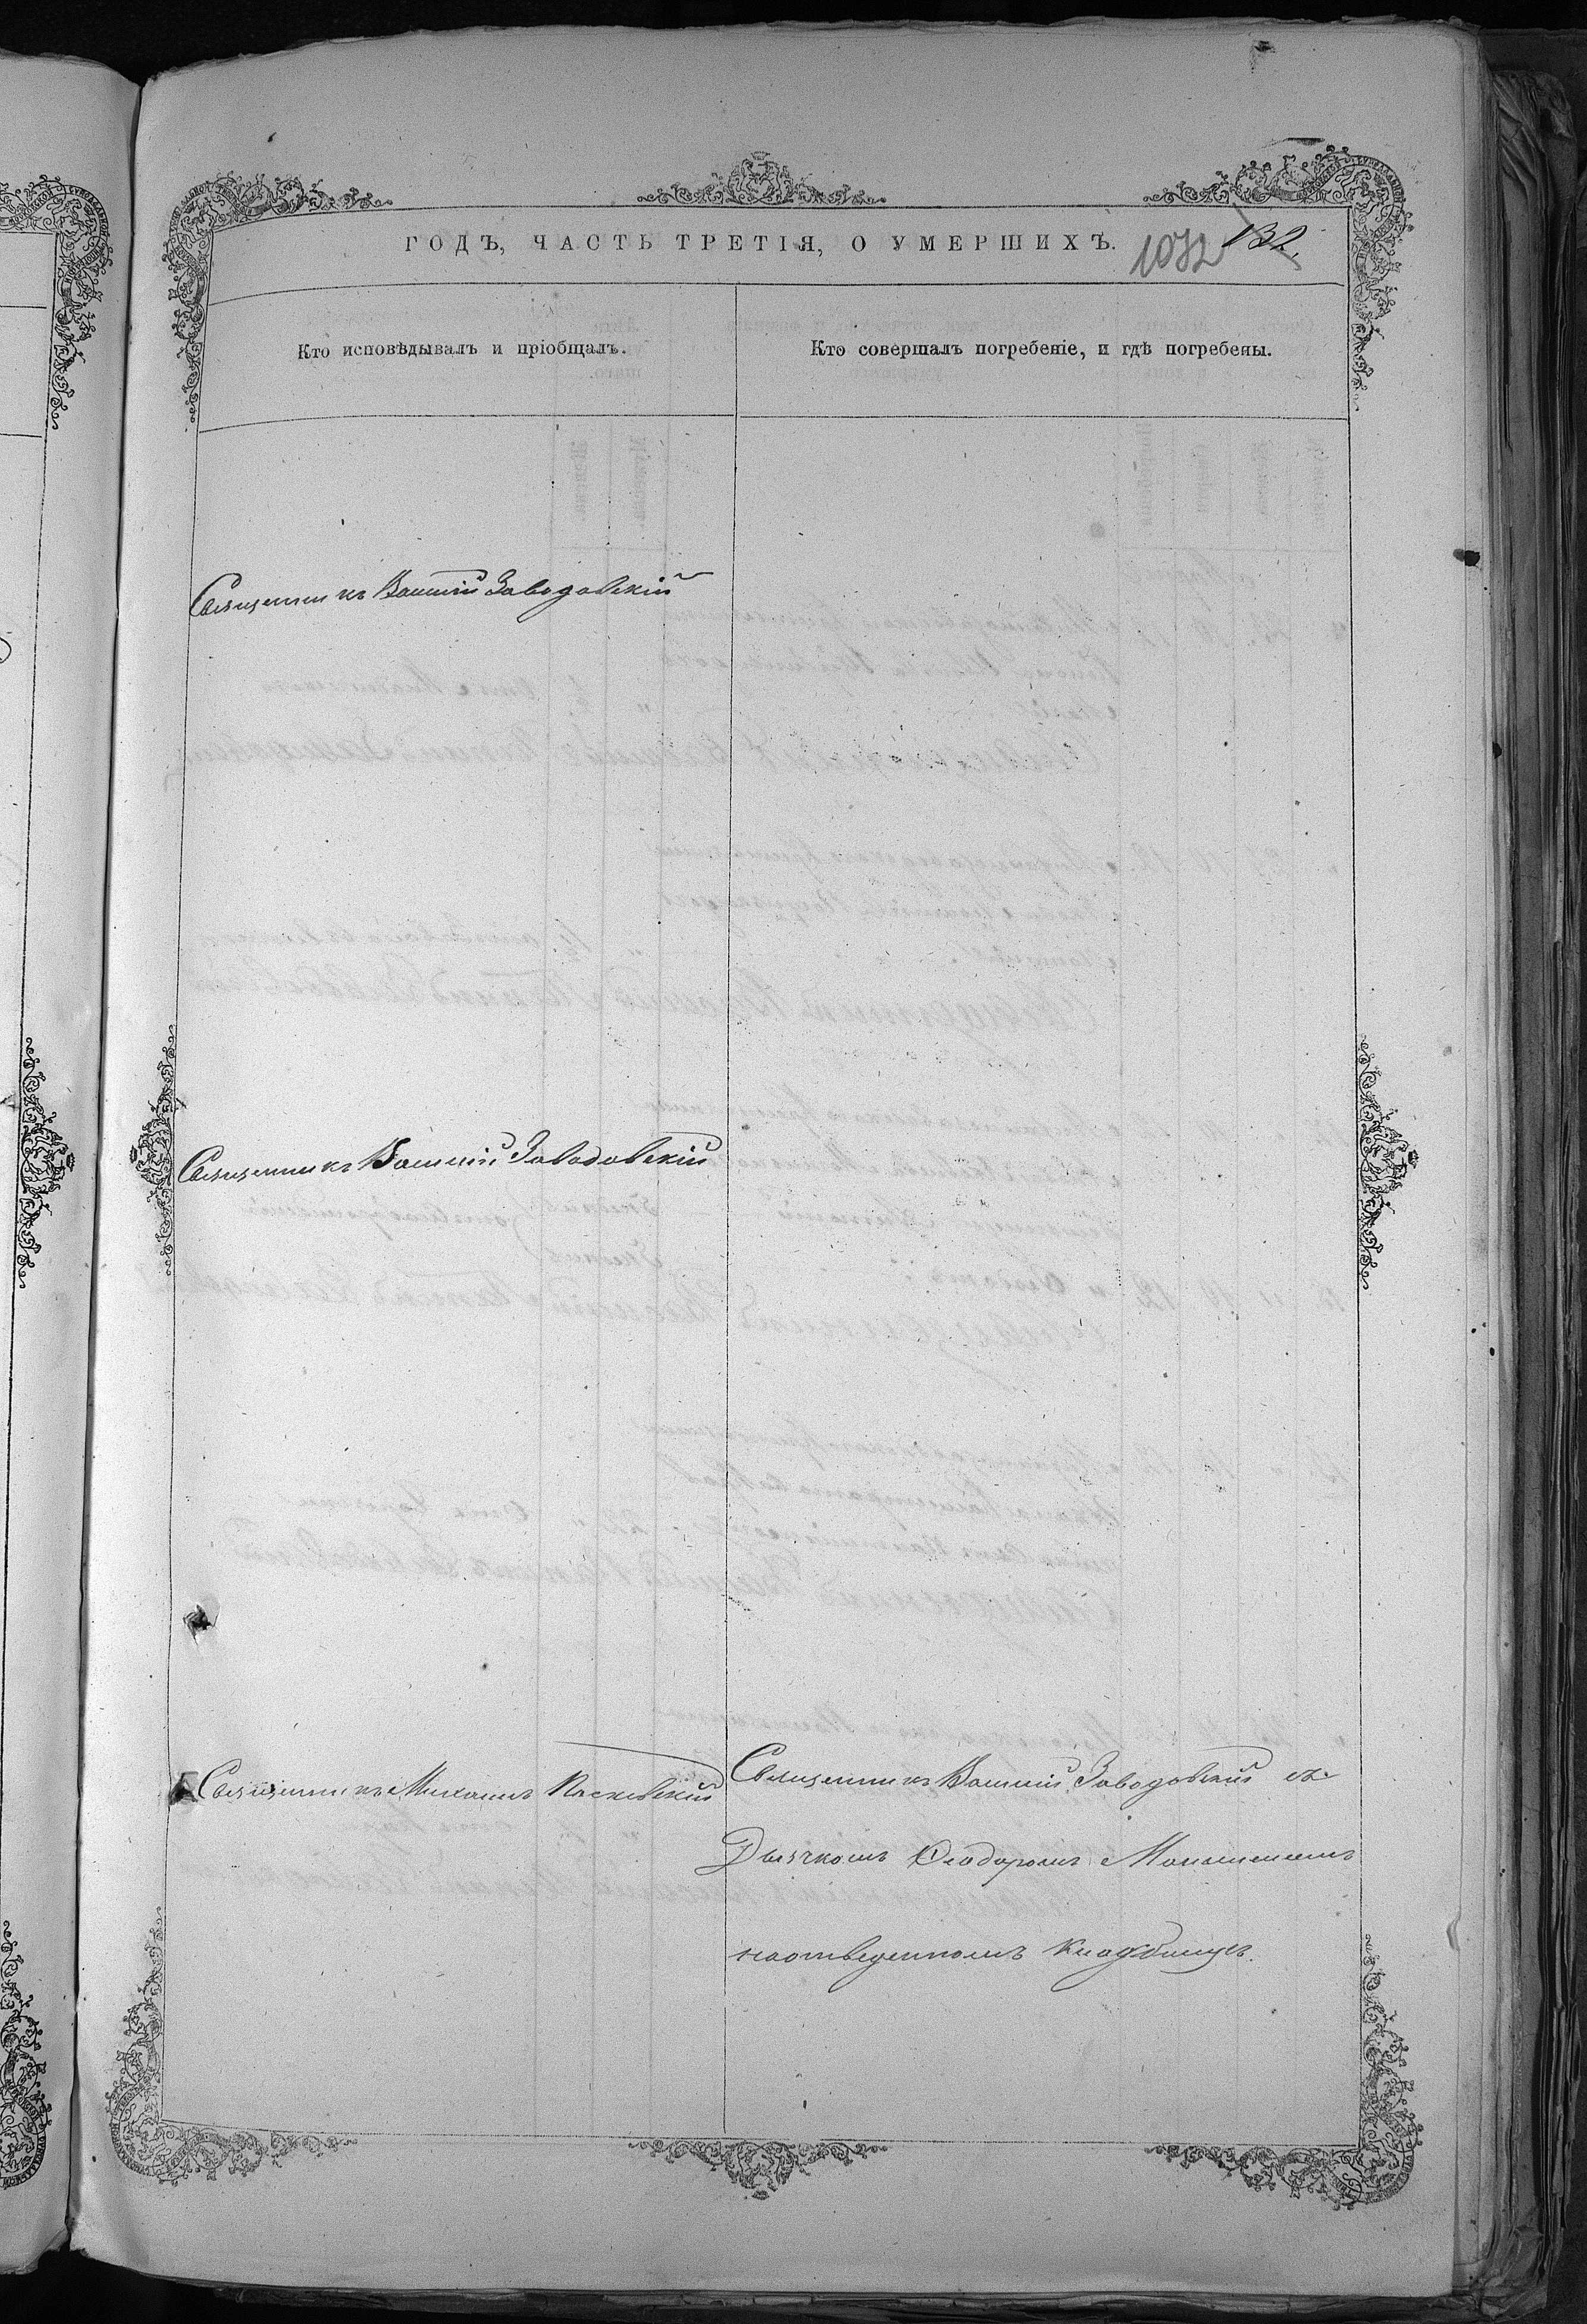 ГОДЪ, ЧАСТЬ ТРЕТІЯ, О УМЕРШИХЪ.
1032 132.
Кто исповѣдывалъ и пріобщалъ.
Кто совершалъ погребеніе, и гдѣ погребены.
Священникъ Василій Заводовскій
Священникъ Василій Заводовскій
Священникъ Михаилъ Яскевскій
Священникъ Василій Заводовскій съ
Дьячкомъ Ѳеодоромъ
на отведенномъ кладбищѣ.